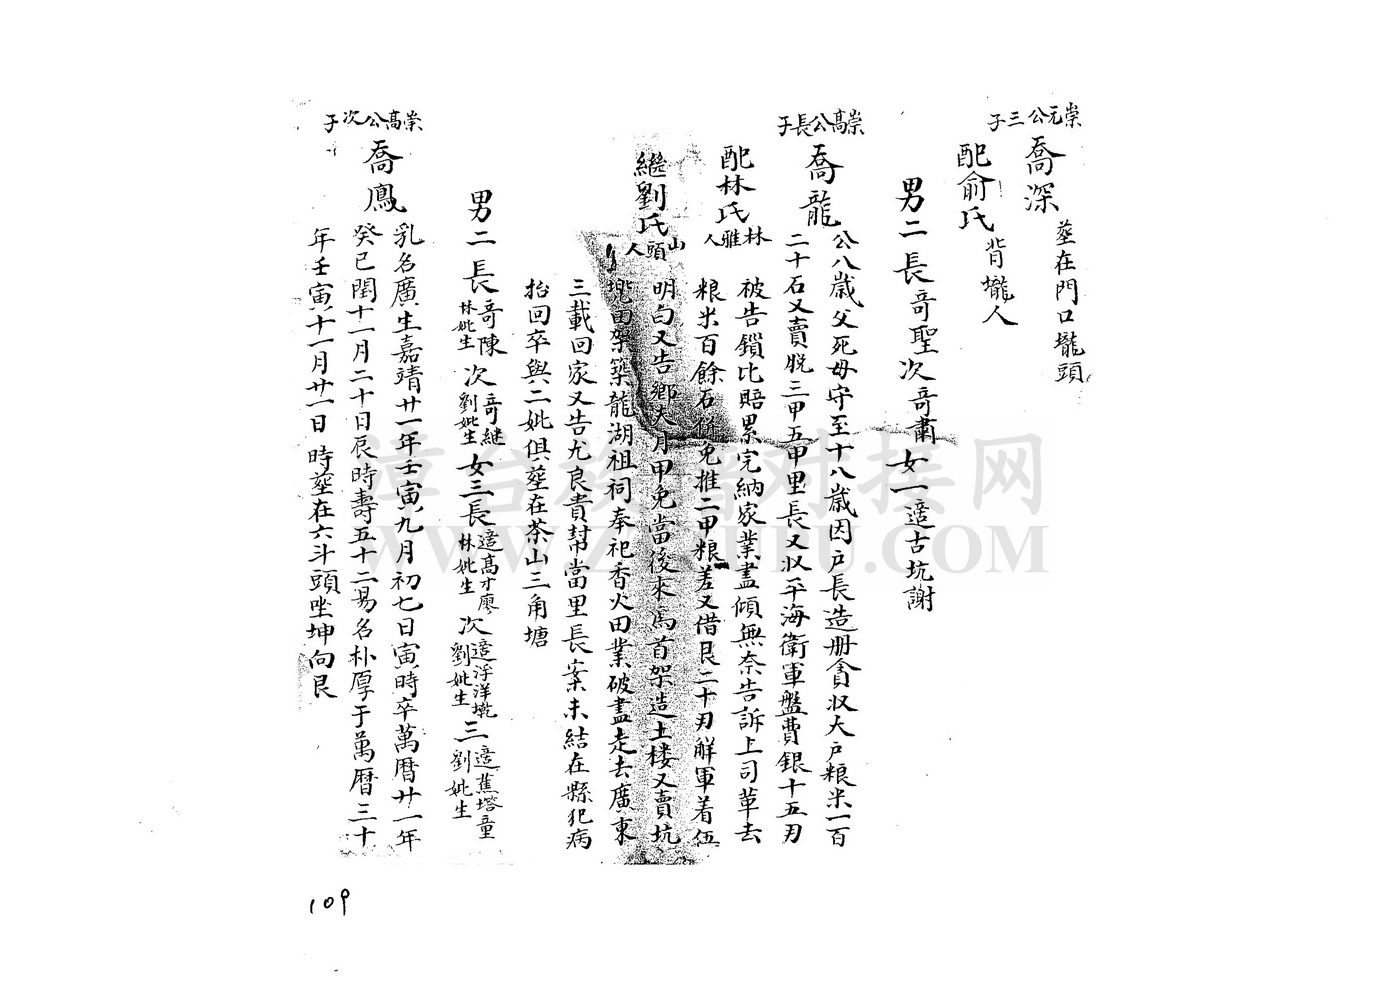 崇元公三子
喬深 塟在門口壠頭
配俞氏 背壠人
男二 長哥聖 次哥肅 女一 適古坑謝
崇高公長子
喬龍 公八歲父死母守至十八歲因户長造册貪收大户粮米一百
二十石又賣脱三甲五甲里長又收平海衛軍盤費銀十五刃
配林氏 林雅人 被告鎖比賠累完納家業盡傾無奈告訴上司革去
粮米百餘石併免推二甲粮差又借艮二十刃解軍着伍
繼劉氏 山頭人 明白又告鄉夫月甲免當後來為首架造土楼又賣坑
兠田架築龍湖祖祠奉祀香火田業破盡走去廣東
三載回家又告尤良貴幫當里長案未結在縣犯病
抬回卒與二妣俱塟在茶山三角塘
男二 長哥陳 林妣生 次哥継 劉妣生 女三 長適高才廖 林妣生 次適浮洋墘 劉妣生 三適蕉塔童 劉妣生
崇高公次子
喬鳳 乳名廣生嘉靖廿一年壬寅九月初七日寅時卒萬曆廿一年
癸巳閏十一月二十日辰時壽五十二易名朴厚于萬曆三十
年壬寅十一月廿一日 時塟在六斗頭坐坤向艮
109
漳台族譜对接网
WWW.ZZJIUPU.COM